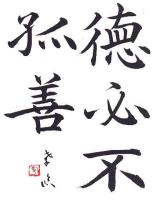 德必不
孤善